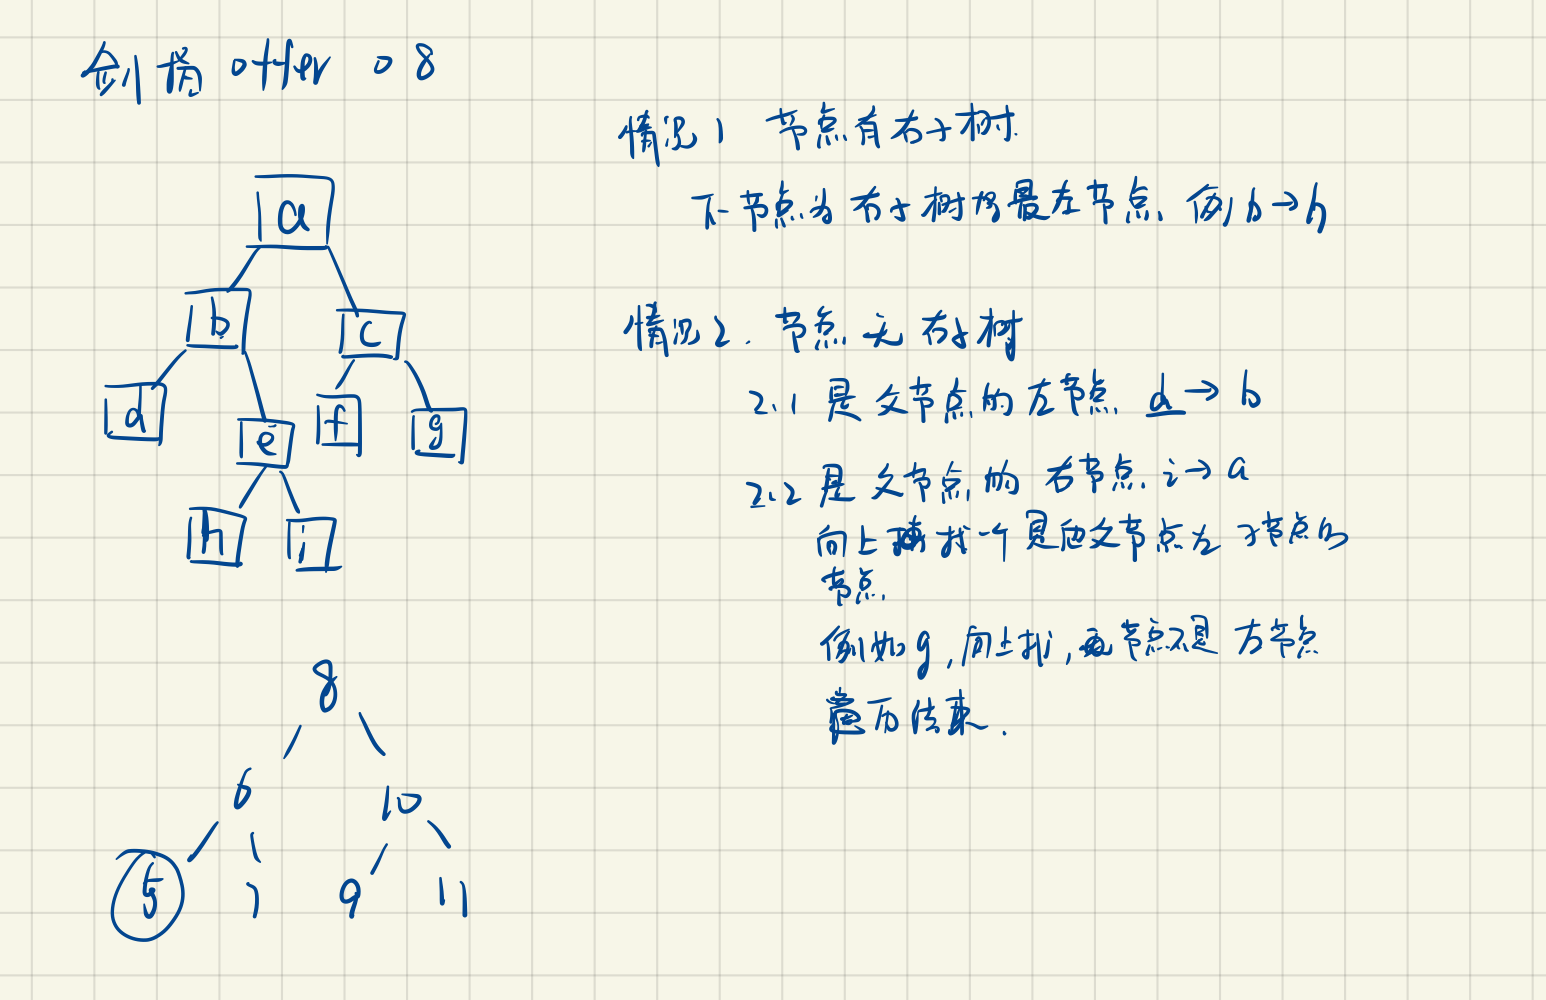 剑指 offer 08
a
b
c
d
e
f
g
h
i
8
6
10
5
7
9
11
情况1 节点有右子树.
下节点为右子树的最左节点. 例 b→h
情况2. 节点无右子树
2.1 是父节点的左节点 d→b
2.2 是父节点的右节点 i→a
向上 找一个是他父节点左子节点的
节点.
例如g, 向上找, 节点不是左节点
遍历结束.